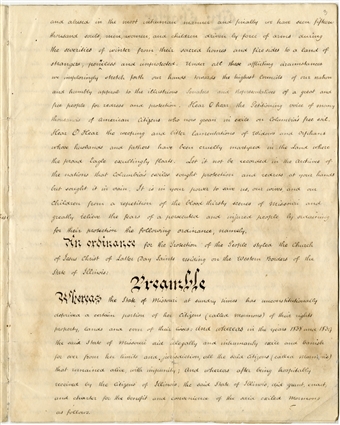 3
and abused in the most inhuman manner and finally we have seen fifteen
thousand souls, men, women, and children driven by force of arms during
the severities of winter from their sacred homes and fire sides to a land of
strangers, pennyless and unprotected. Under all these afflicting circumstances
we imploringly stretch forth our hands towards the highest Councils of our nation
and humbly appeal to the illustrious Senators and Representatives of a great and
free people for redress and protection. Hear O hear the Petitioning voice of many
thousands of American Citizens who now groan in exile on Columbia's free soil.
Hear O Hear the weeping and bitter lamentations of Widows and Orphans
whose husbands and fathers have been cruelly martyred in the land where
the proud Eagle exultingly floats. Let it not be recorded in the archives of
the nations that Columbia's exiles sought protection and redress at your hands
but sought it in vain. It is in your power to save us, our wives and our
Children from a repetition of the blood thirsty scenes of Missouri and
greatly relieve the fears of a persecuted and injured people by ordaining
for their protection the following ordinance, namely,
An ordinance for the Protection of the People styled the Church
of Jesus Christ of Latter Day Saints residing on the Western Borders of the
State of Illinois.
Preamble
Whereas the State of Missouri at sundry times has unconstitutionally
deprived a certain portion of her Citizens (called Mormons) of their rights
property, lands and even of their lives; And whereas in the years 1838 and 1839
the said State of Missouri did illegally and inhumanly exile and banish
for ever from her limits and jurisdiction, all the said Citizens
that remained alive, with impunity; And whereas after being hospitably
received by the Citizens of Illinois, the said State of Illinois, did grant, enact,
and charter for the benefit and convenience of the said exiled Mormons
as follows